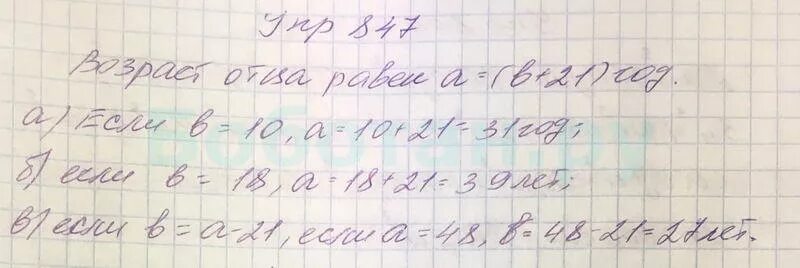 Упр 847
Возраст отца равен a = (в+21) год.
а) Если в = 10, а = 10+21 = 31 год;
б) если в = 18, а = 18+21 = 39 лет;
в) если в = а-21, если а = 48, в = 48-21 = 27 лет.